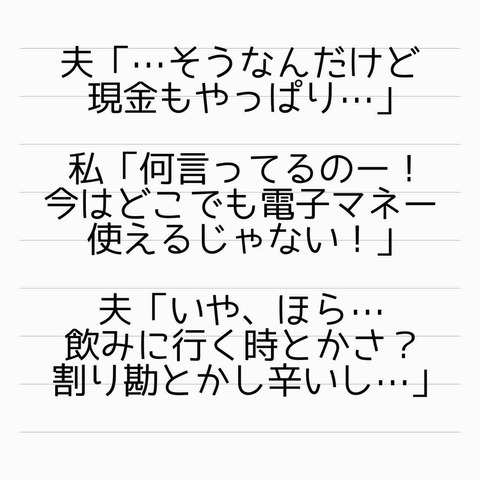 夫「…そうなんだけど
現金もやっぱり…」
私「何言ってるのー！
今はどこでも電子マネー
使えるじゃない！」
夫「いや、ほら…
飲みに行く時とかさ？
割り勘とかし辛いし…」